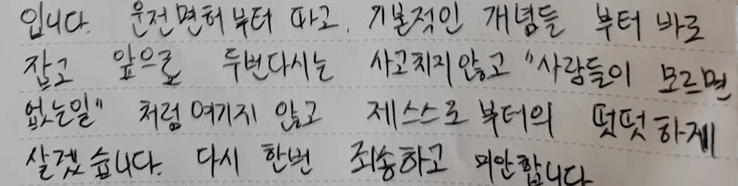 입니다. 운전면허부터 따고, 기본적인 개념들 부터 바로
잡고 앞으로 두번다시는 사고치지않고 "사람들이 모르면
없는일" 처럼 여기지 않고 제스스로부터의 떳떳하게
살겠습니다. 다시 한번 죄송하고 미안합니다